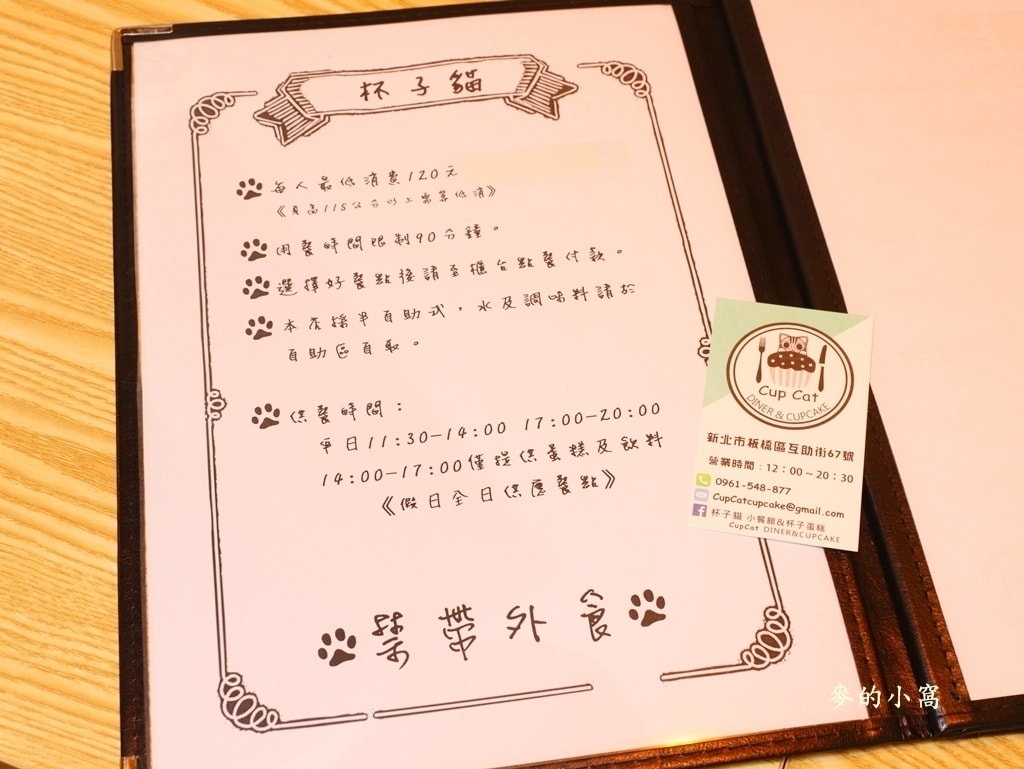 杯子貓
每人最低消費120元
《身高115公分以上需算低消》
用餐時間限制90分鐘。
選擇好餐點後請至櫃台點餐付款。
本店採半自助式，水及調味料請於
自助區自取。
供餐時間：
平日11:30-14:00 17:00-20:00
14:00-17:00僅提供蛋糕及飲料
《假日全日供應餐點》
禁帶外食
Cup Cat
DINER & CUPCAKE
新北市板橋區互助街67號
營業時間：12：00～20：30
0961-548-877
CupCatcupcake@gmail.com
杯子貓 小餐館&杯子蛋糕
CupCat DINER&CUPCAKE
麥的小窩